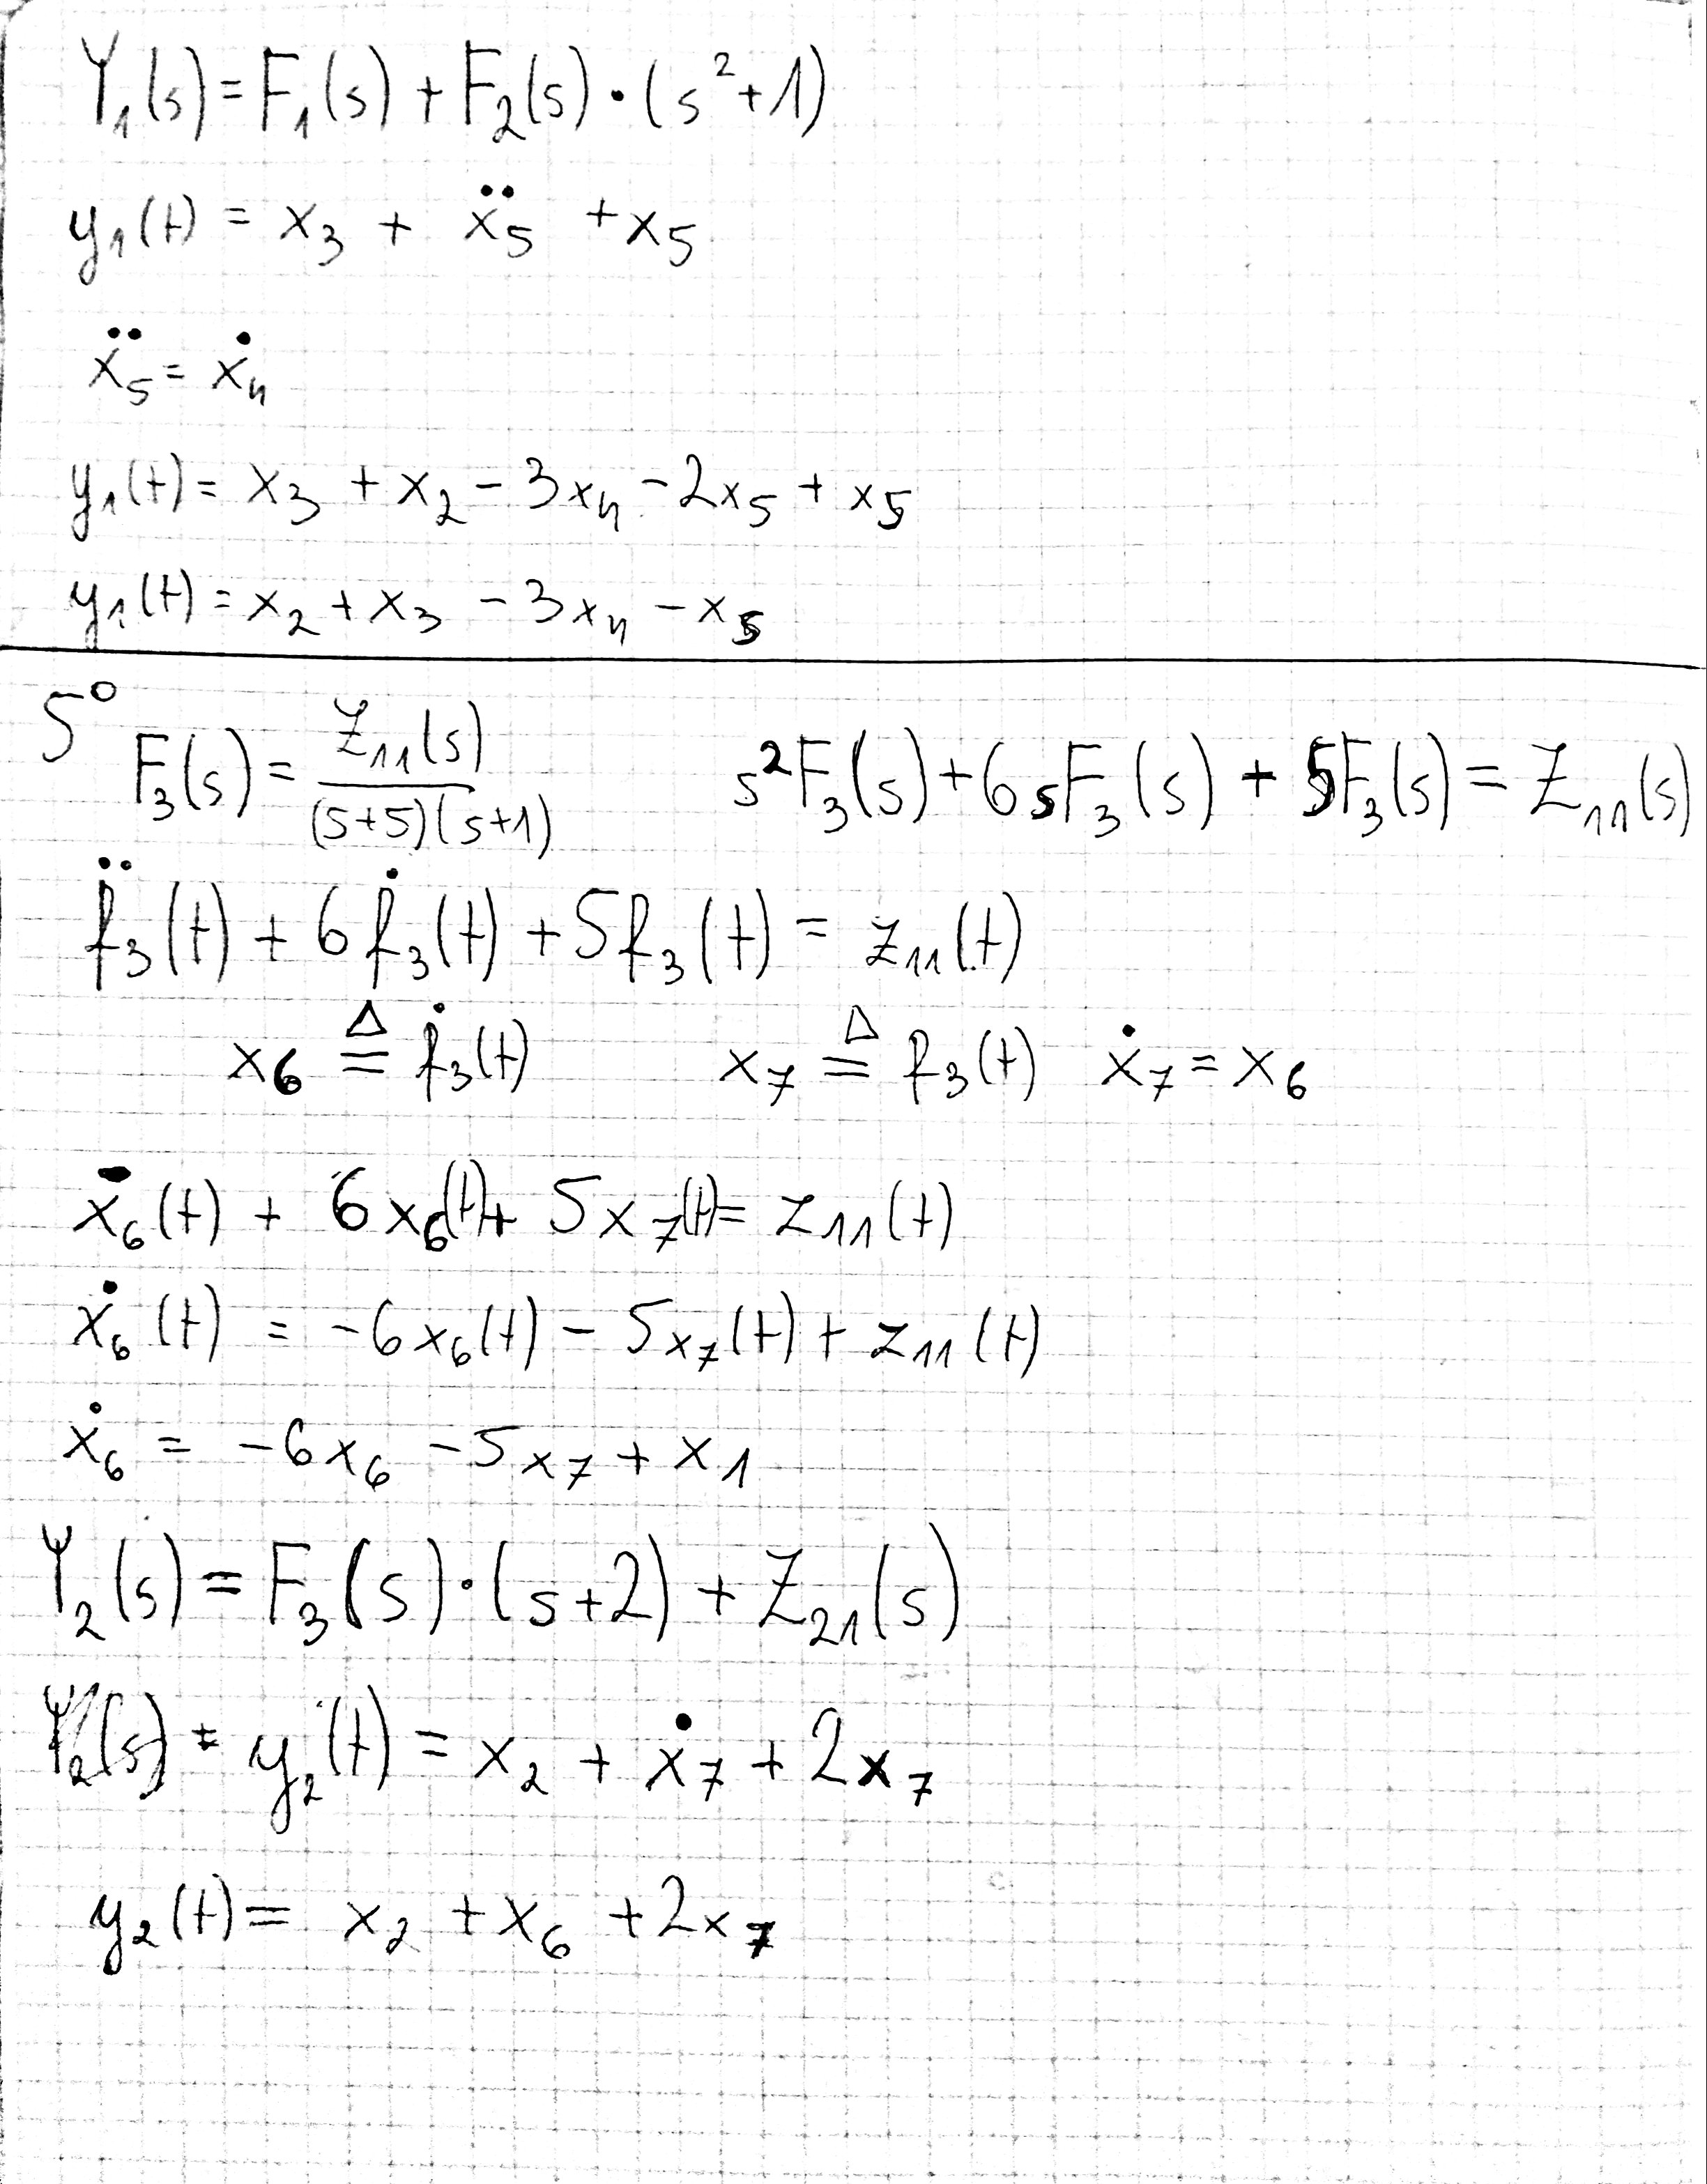 Y₁(s) = F₁(s) + F₂(s) · (s² + 1)
y₁(t) = x₃ + ẍ₅ + x₅
ẍ₅ = ẋ₄
y₁(t) = x₃ + x₂ - 3x₄ - 2x₅ + x₅
y₁(t) = x₂ + x₃ - 3x₄ - x₅
5° F₃(s) = Z₁₁(s) / (s+5)(s+1) s²F₃(s) + 6sF₃(s) + 5F₃(s) = Z₁₁(s)
f̈₃(t) + 6ḟ₃(t) + 5f₃(t) = z₁₁(t)
x₆ ≜ ḟ₃(t) x₇ ≜ f₃(t) ẋ₇ = x₆
ẋ₆(t) + 6x₆(t) + 5x₇(t) = z₁₁(t)
ẋ₆(t) = -6x₆(t) - 5x₇(t) + z₁₁(t)
ẋ₆ = -6x₆ - 5x₇ + x₁
Y₂(s) = F₃(s) · (s+2) + Z₂₁(s)
y₂(t) = x₂ + ẋ₇ + 2x₇
y₂(t) = x₂ + x₆ + 2x₇